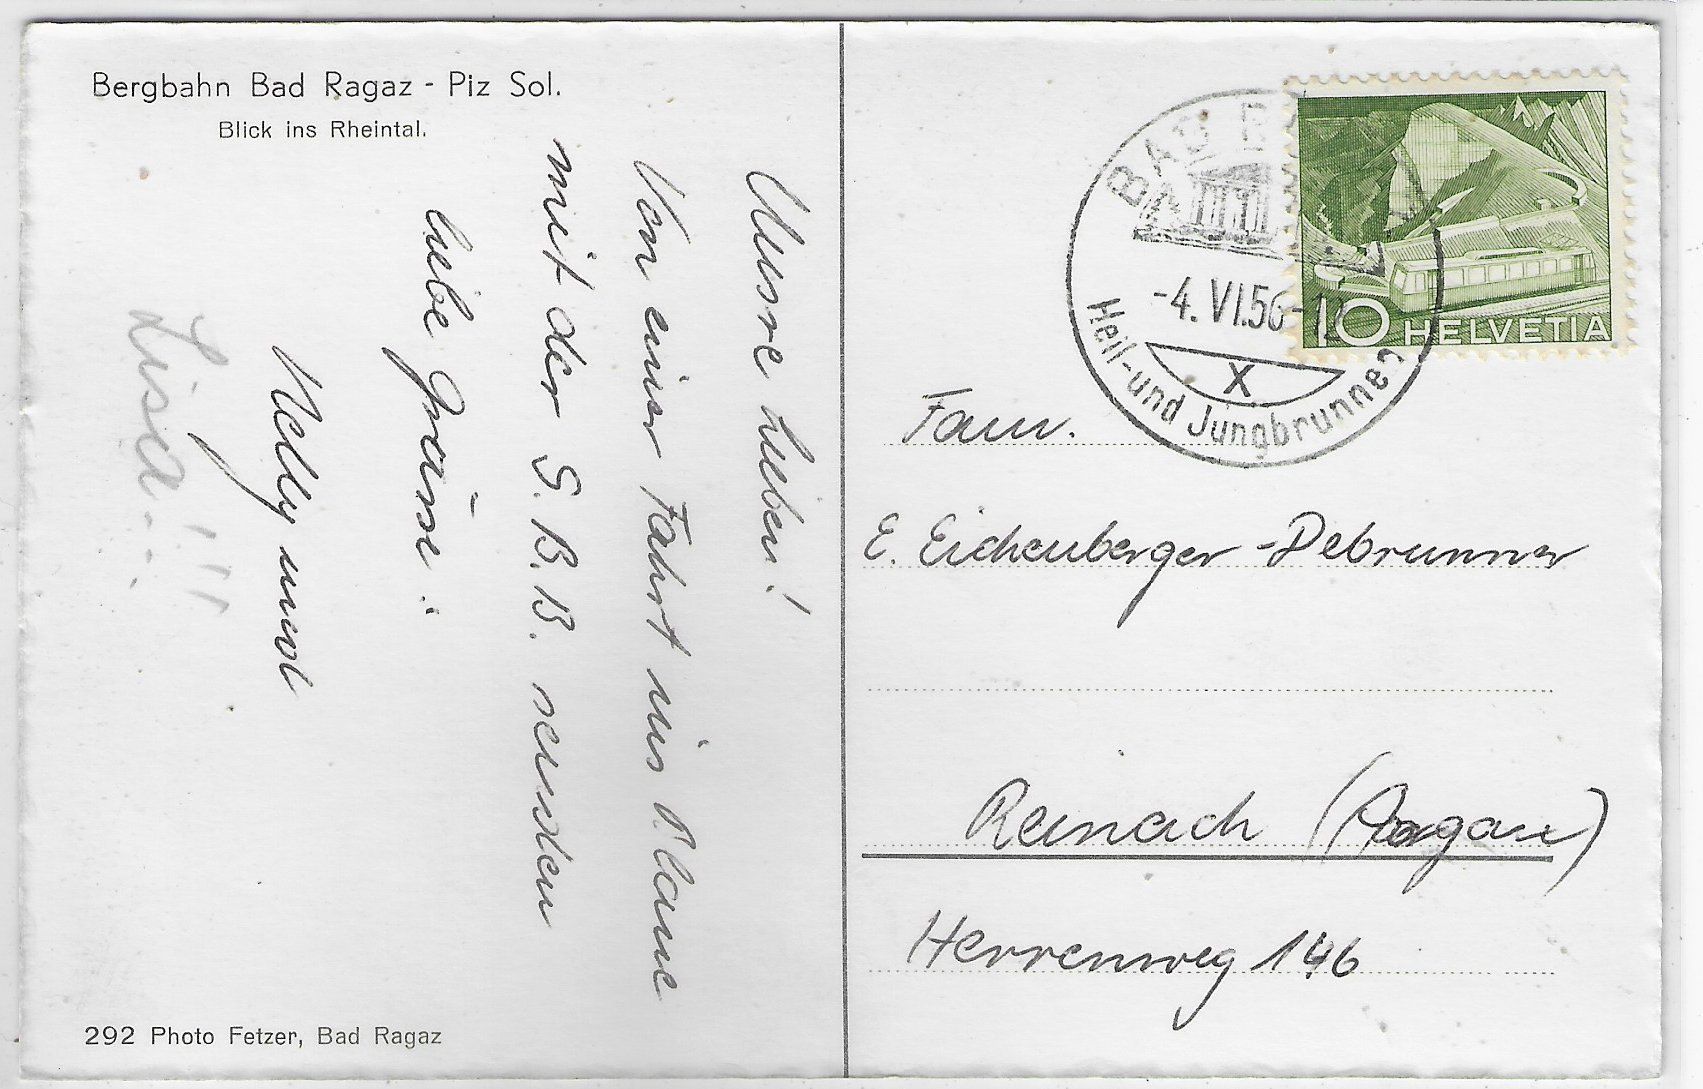 Bergbahn Bad Ragaz - Piz Sol.
Blick ins Rheintal.
Meine Lieben!
Von einer Fahrt ins Blaue
mit der S.B.B. senden
liebe Grüsse:
Nelly und
Lisa...!!!
292 Photo Fetzer, Bad Ragaz
BAD R
-4. VI.56-12
X
Heil- und Jungbrunnen
10 HELVETIA
Fam.
E. Eichenberger-Debrunner
Reinach (Aargau)
Herrenweg 146